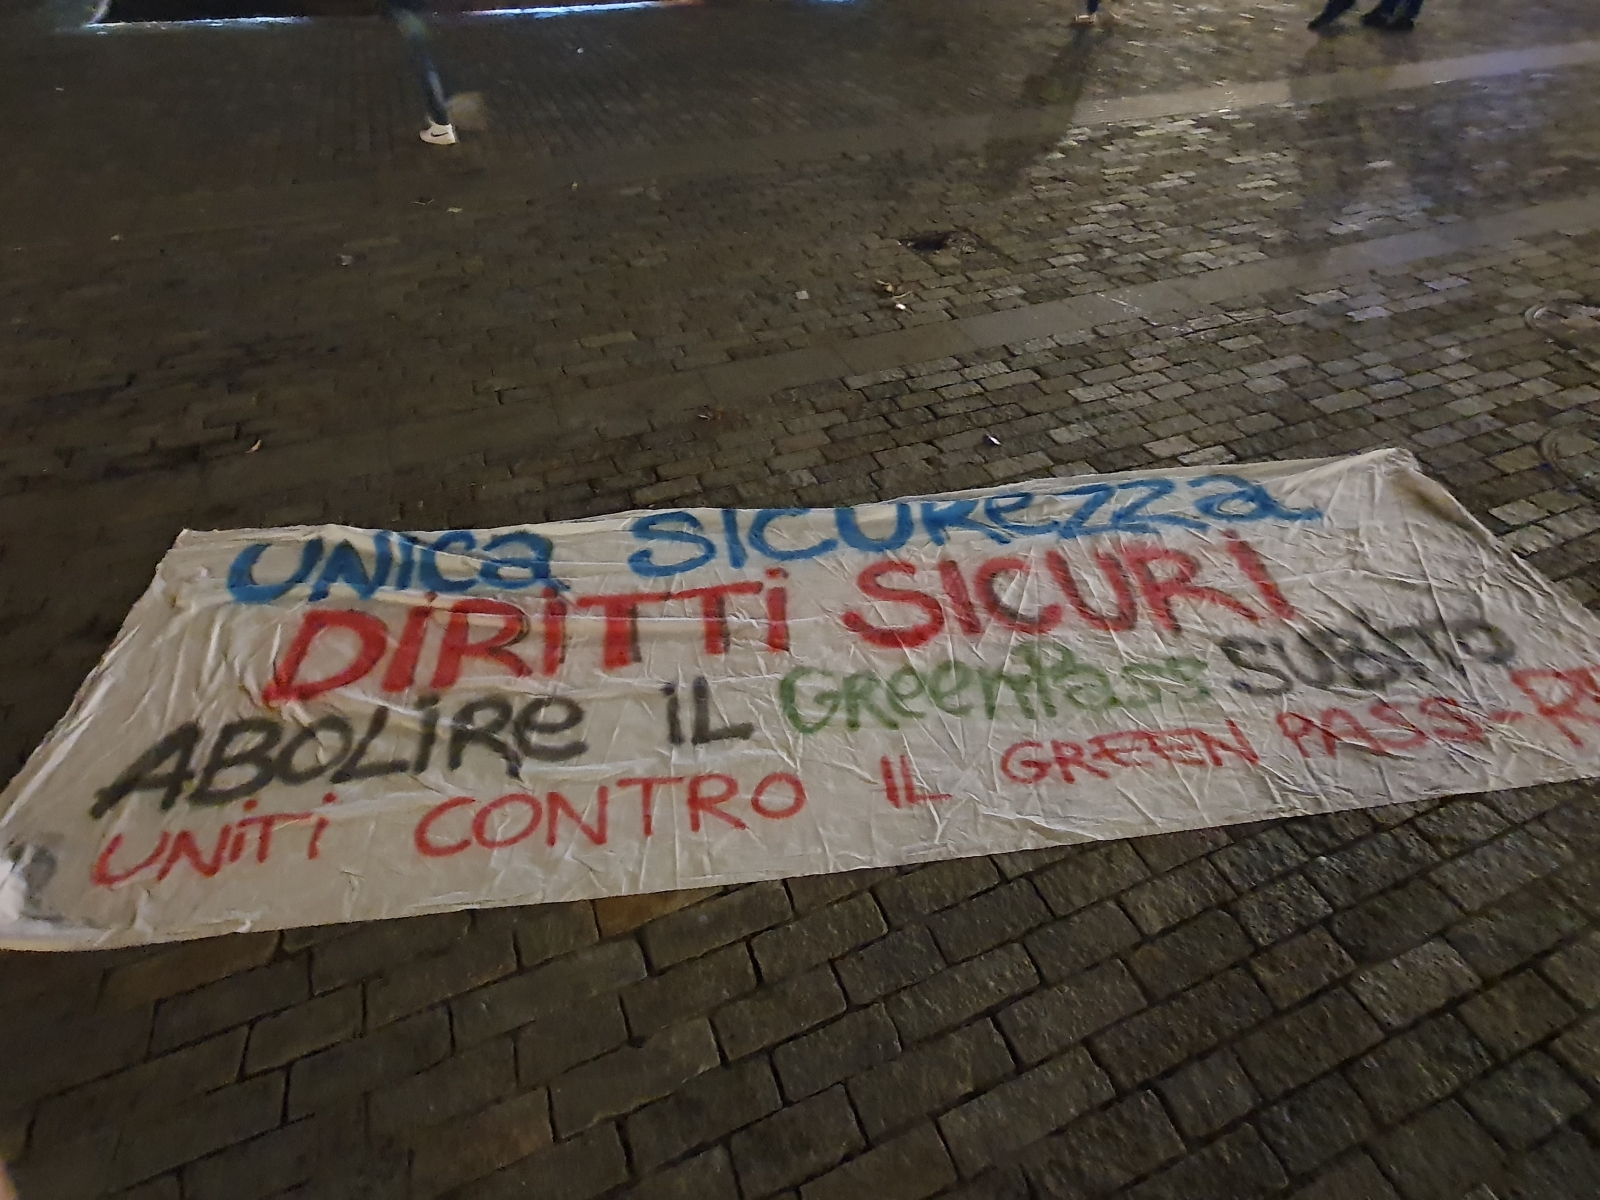 UNICa SICUREZZa
DIRITTI SICURI
ABOLIRE IL GReenPass SUBITO
UNITI CONTRO IL GREEN PASS -